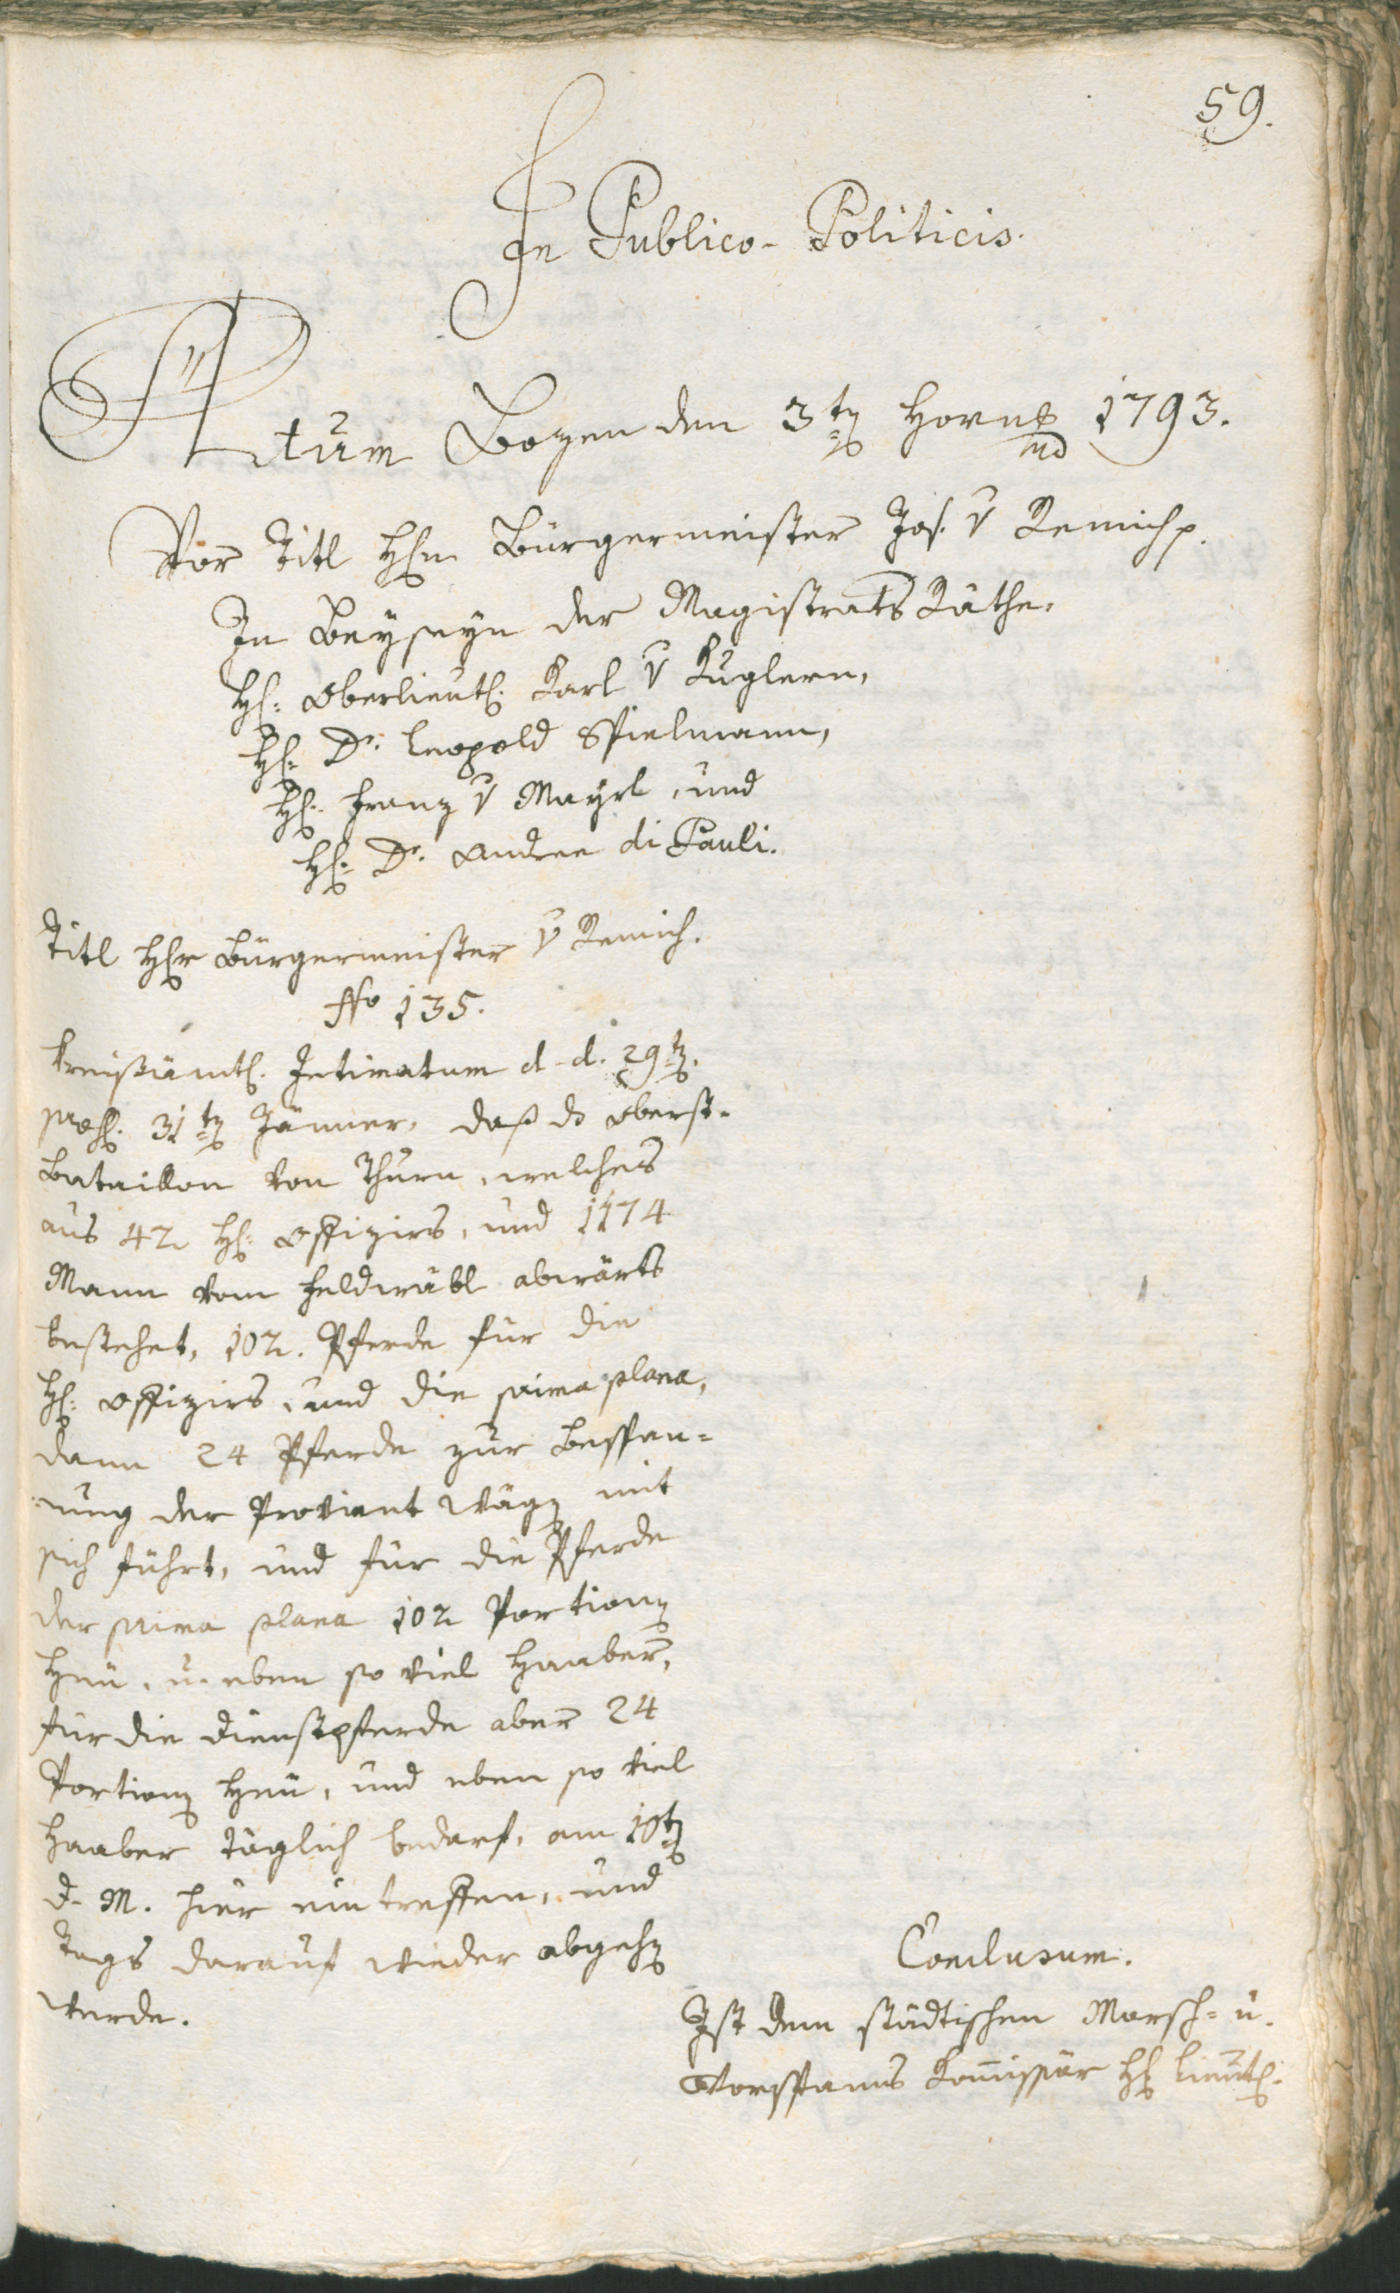 59.
In Publico-Politicis.
Actum Bozen den 3t Hornung 1793.
Vor Titl H. Bürgermeister Jos. v Remich p.
In Beyseyn der Magistrats Räthe,
H: Oberlieut. Karl v Kuglern,
H: Dr. Leopold Spielmann,
H: Franz v Mayrl, und
H: Dr. Andree di Pauli.
Titl Herr Bürgermeister v Remich.
No 135.
Kreißämtl. Intimatum d. d. 29t.
pres. 31t Jänner, daß ds Oberst-
Bataillon von Thurn, welches
aus 42 H: Offizirs, und 1174
Mann vom Feldwäbl abwärts
bestehet, 102. Pferde für die
H: Offizirs, und die prima plana,
dann 24 Pferde zur Bespan=
nung der Proviant Wägen mit
sich führt, und für die Pferde
der prima plana 102 Portionen
Heu, u. eben so viel Haaber,
für die Dienstpferde aber 24
Portionen Heu, und eben so viel
Haaber täglich bedarf, am 10ten
d. M. hier eintreffen, und
Tags darauf wieder abgehen
werde.
Conclusum.
Ist dem städtischen Marsch= u.
Vorspanns Kommissär H. Lieut.